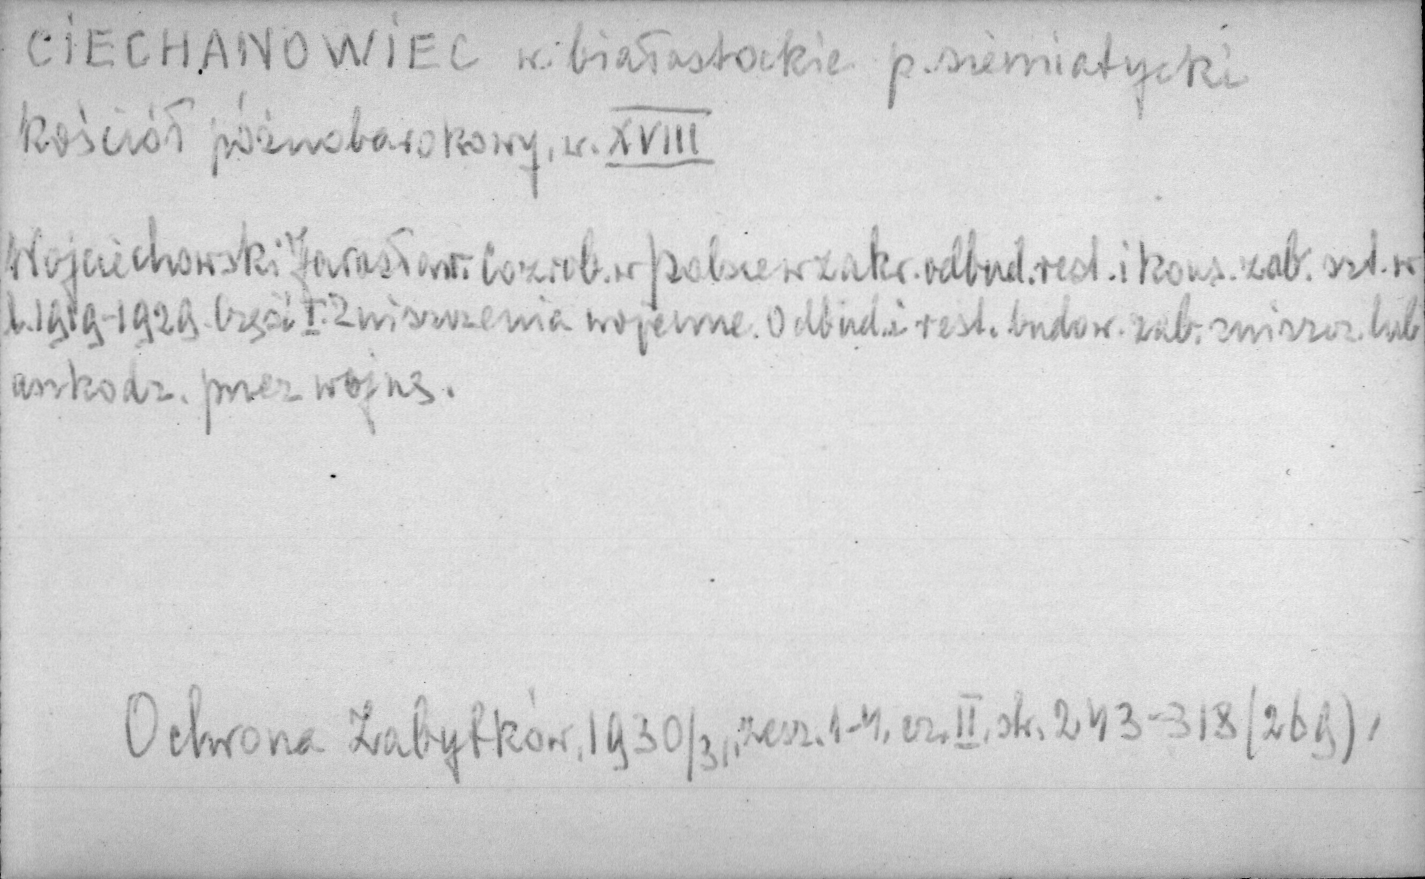 CIECHANOWIEC w. białostockie p. siemiatycki
kościół późnobarokowy, w. XVIII
Wojciechowski Jarosław: Co zrob. w Polsce w zakr. odbud. rest. i kons. zab. szt. w
l. 1919-1929. Część I. Zniszczenia wojenne. Odbud. i rest. budow. zab. zniszcz. lub
uszkodz. przez wojnę.
Ochrona Zabytków, 1930/3, zesz. 1-4, cz. II, str. 243-318 (269),